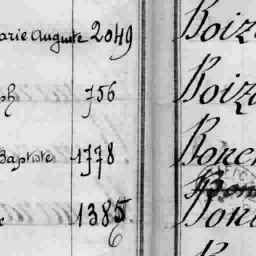 arie Auguste 2049
ph 756
Baptiste 1778
e 1385
6
Boiz
Boiz
Bonc
Bon
Bon